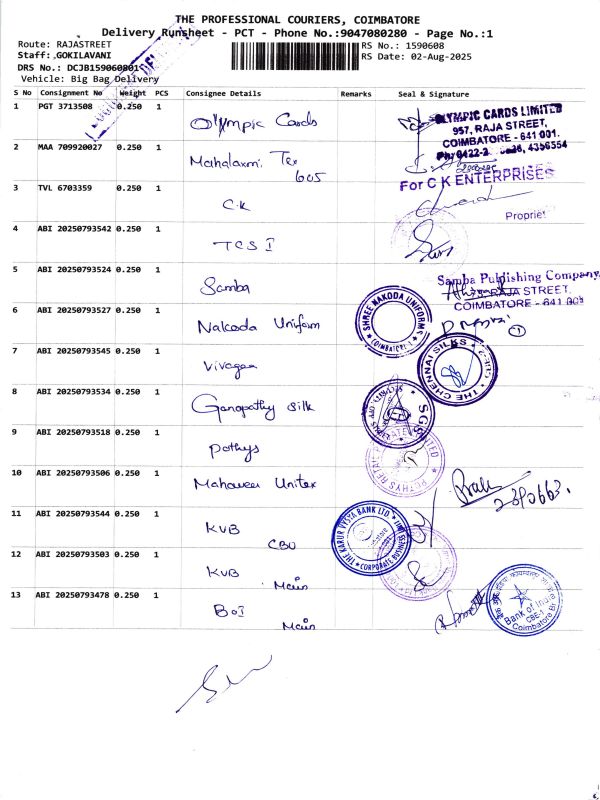 THE PROFESSIONAL COURIERS, COIMBATORE
Delivery Runsheet - PCT - Phone No.:9047080280 - Page No.:1
Route: RAJASTREET
RS No.: 1590608
Staff: GOKILAVANI
RS Date: 02-Aug-2025
DRS No.: DCJB159060801
Vehicle: Big Bag Delivery
S No Consignment No Weight PCS Consignee Details Remarks Seal & Signature
1 PGT 3713508 0.250 1 Olympic Cards
OLYMPIC CARDS LIMITED
957, RAJA STREET,
COIMBATORE - 641 001.
2 MAA 709920027 0.250 1 Mahalaxmi Tex
605
For C K ENTERPRISES
3 TVL 6703359 0.250 1 C.K
4 ABI 20250793542 0.250 1 TCS I
5 ABI 20250793524 0.250 1 Samba
Samba Publishing Company
RAJA STREET,
COIMBATORE - 641 001
6 ABI 20250793527 0.250 1 Nalkoda Uniform
SHREE NAKODA UNIFORMS
COIMBATORE-1
1
7 ABI 20250793545 0.250 1 Vivagaa
THE CHENNAI SILKS
8 ABI 20250793534 0.250 1 Ganapathy Silk
SGS
9 ABI 20250793518 0.250 1 Pothys
10 ABI 20250793506 0.250 1 Mahaveer Unitex
11 ABI 20250793544 0.250 1 KVB
CBU
THE KARUR VYSYA BANK LTD
CORPORATE BUSINESS
12 ABI 20250793503 0.250 1 KVB
Main
13 ABI 20250793478 0.250 1 BOI
Main
Bank of India
CBE-1
Coimbatore